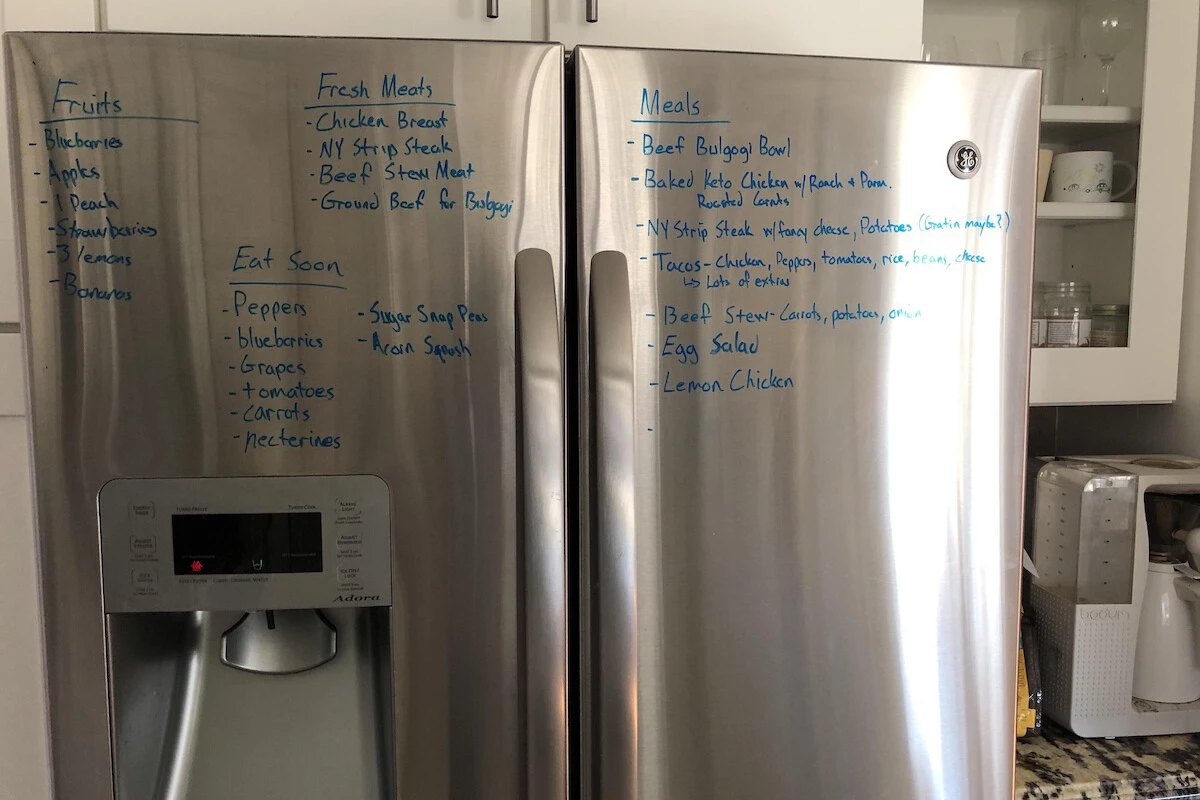 Fruits
- Blueberries
- Apples
- 1 Peach
- Strawberries
- 3 lemons
- Bananas
Fresh Meats
- Chicken Breast
- NY Strip Steak
- Beef Stew Meat
- Ground Beef for Bulgogi
Eat Soon
- Peppers
- blueberries
- Grapes
- tomatoes
- carrots
- necterines
- Sugar Snap Peas
- Acorn Squash
Meals
- Beef Bulgogi Bowl
- Baked Keto Chicken w/ Ranch + Parm.
Roasted Carrots
- NY Strip Steak w/fancy cheese, Potatoes (Gratin maybe?)
- Tacos - Chicken, Peppers, tomatoes, rice, beans, cheese
↳ Lots of extras
- Beef Stew - Carrots, potatoes, onion
- Egg Salad
- Lemon Chicken
-
Adora
bodum